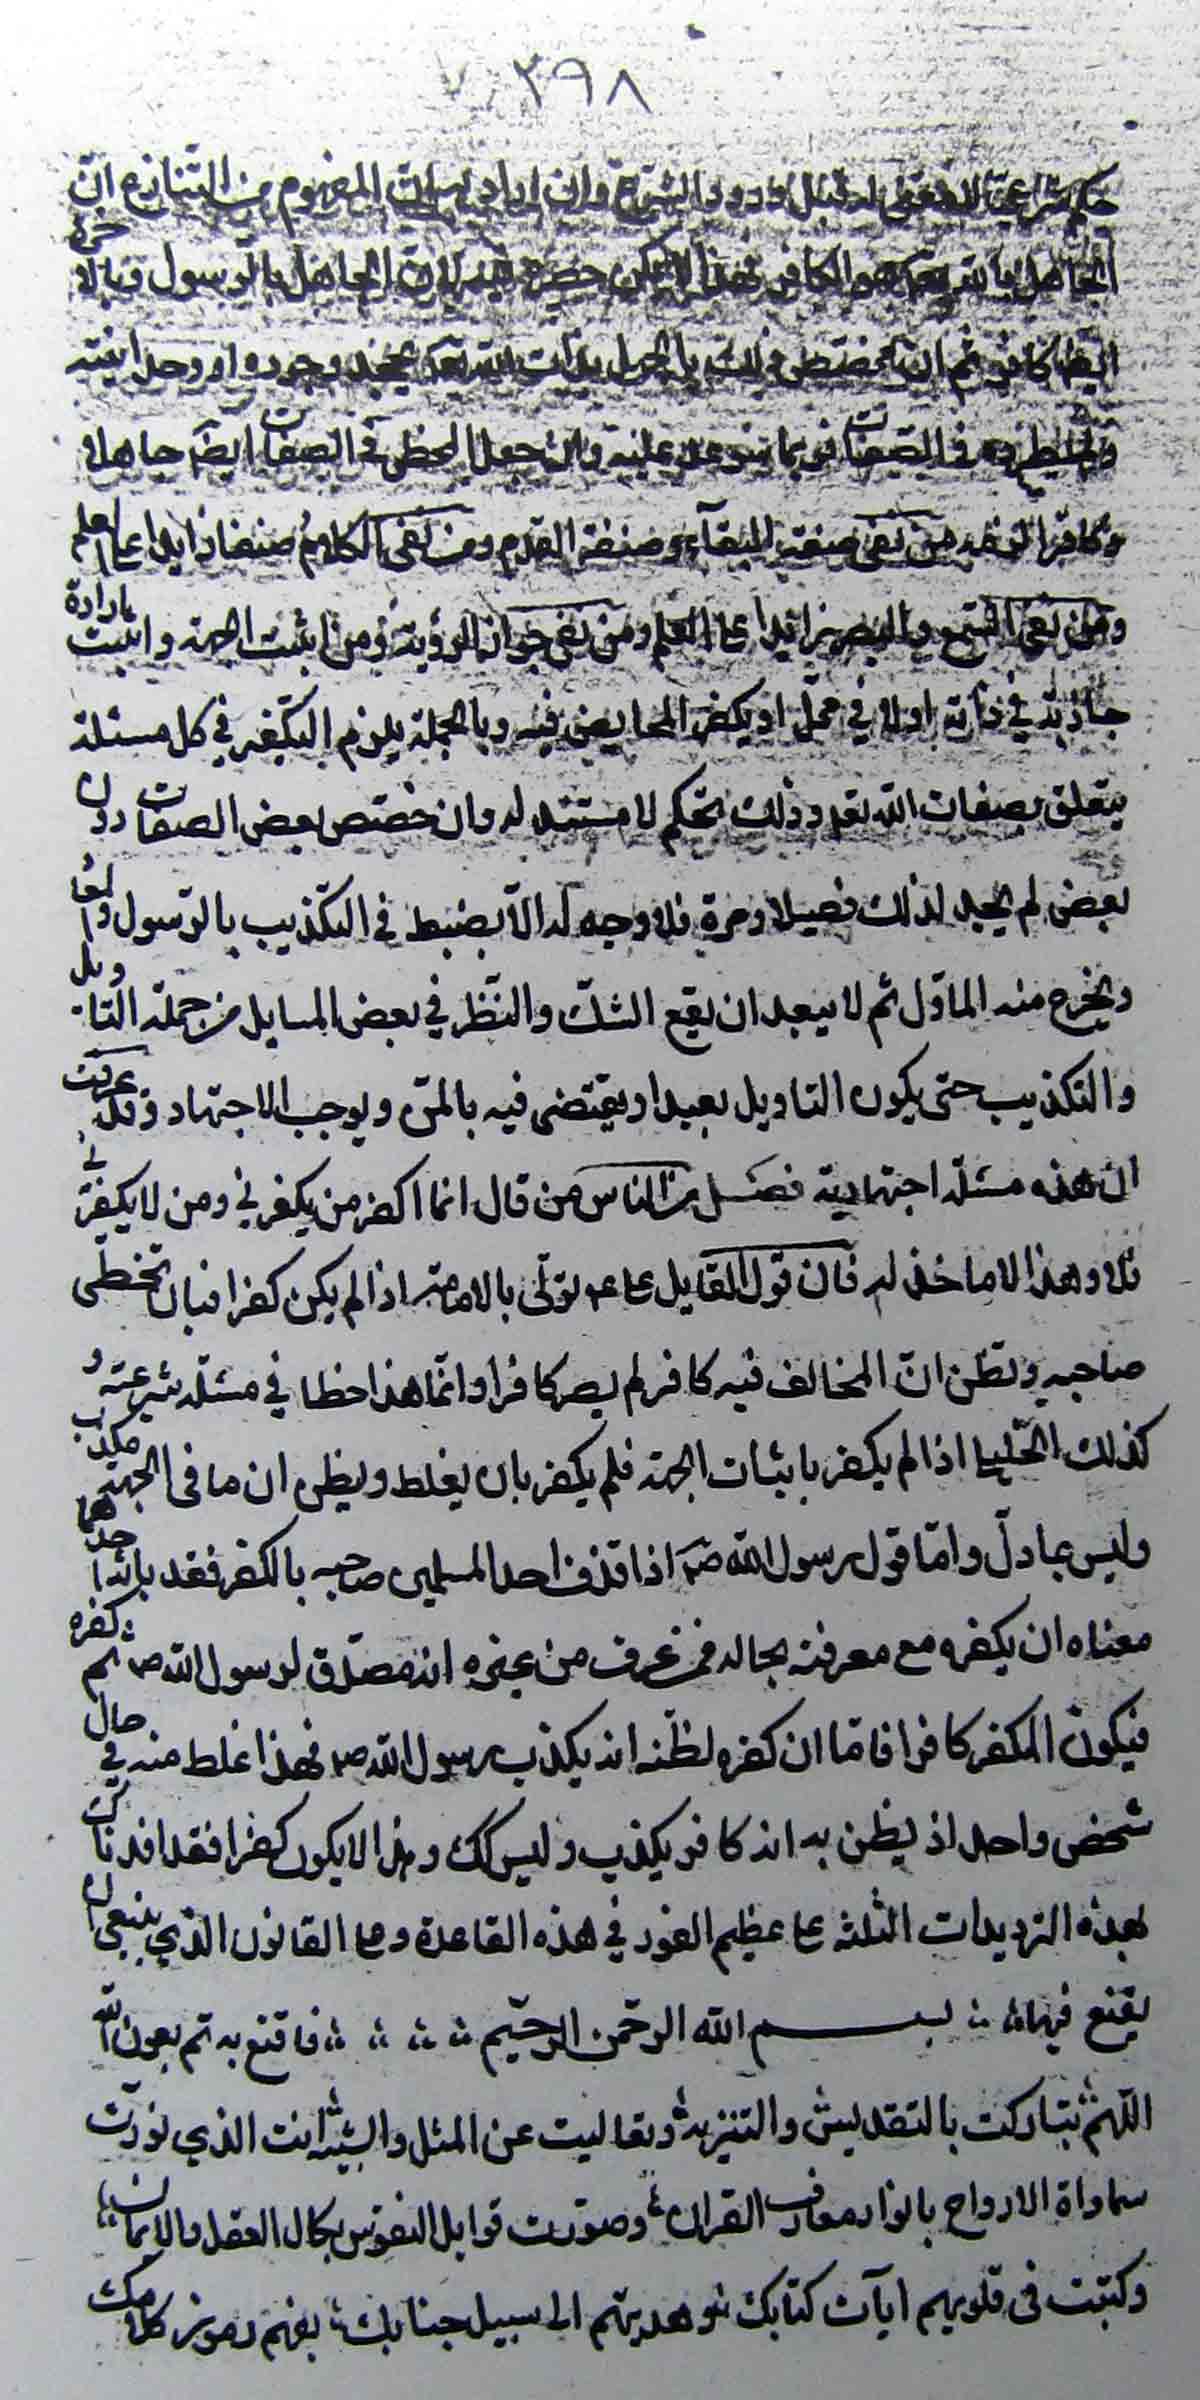 ٣٩٨
حكم شرعي لا معنى له قبل ورود الشرع وان اراد به ان المفهوم من الشارع ان
الجاهل بالله تعالى هو الكافر فهذا لا يمكن حصره فيه لان الجاهل بالرسول وبالآخرة
ايضا كافر ثم ان خصص ذلك بالجهل بذات الله تعالى بجحد وجوده او وحدانيته
ولم يطرده في الصفات فربما سوعد عليه وان جعل المخطي في الصفات ايضا جاهلا
وكافرا لزمه من نفى صفة البقاء وصفة القدم ومن نفى الكلام وصفا زايدا على العلم
ومن نفى السمع والبصر زائدا على العلم ومن نفى جواز الرؤية ومن اثبت الجهة واثبت بارادة
حادثة في ذاته او لا في محل او يكفر المخالفين فيه وبالجملة يلزم التكفير في كل مسئلة
يتعلق بصفات الله تعالى وذلك تحكم لا مستند له وان خصص بعض الصفات دون
بعض لم يجد لذلك فصيلا ومردا فلا وجه له الا بضبط في التكذيب بالرسول والمعا
ويخرج منه الماؤل ثم لا يبعد ان يقع الشك والنظر في بعض المسايل من جملة التاويل
والتكذيب حتى يكون التاويل بعيدا ويقتضى فيه بالظن ويوجب الاجتهاد وقد عرفت
ان هذه مسئلة اجتهادية فصل من الناس من قال انما اكفر من يكفرني ومن لا يكفرني
فلا وهذا لا ماخذ له فان قول القايل على ع اولى بالامامة اذا لم يكن كفرا فبان تخطى
صاحبه وتظن ان المخالف فيه كافر لم يصر كافرا وانما هذا خطا في مسئلة شرعية و
كذلك الحنبلي اذا لم يكفر باثبات الجهة فلم يكفر بان يغلط ويظن ان نافي الجهة مكذب
وليس بماول واما قول رسول الله ص اذا قذف احد المسلمين صاحبه بالكفر فقد باء به احدهما
معناه ان يكفره مع معرفته بحاله فمن عرف من غيره انه مصدق لرسول الله ص ثم كفره
فيكون المكفر كافرا فاما ان كفره لظنه انه يكذب رسول الله ص فهذا غلط منه في حال
شخص واحد اذ يظن به انه كافر يكذب وليس كك وهذا لا يكون كفرا فقد افدناك
بهذه الترديدات الثلثه على عظيم الغور في هذه القاعدة وعلى القانون الذي ينبغي ان
يقنع فيها بسم الله الرحمن الرحيم فاقنع به تم بعون الله
اللهم تباركت بالتقديس والتنزيه وتعاليت عن المثل والشبيه انت الذي نورت
سماواة الارواح بانوار معارف القران وصورت قوابل النفوس بكمال العقل والايمان
وكتبت في قلوبهم ايآت كتابك وهديتهم الى سبيل جنابك بفهم رموز كلامك